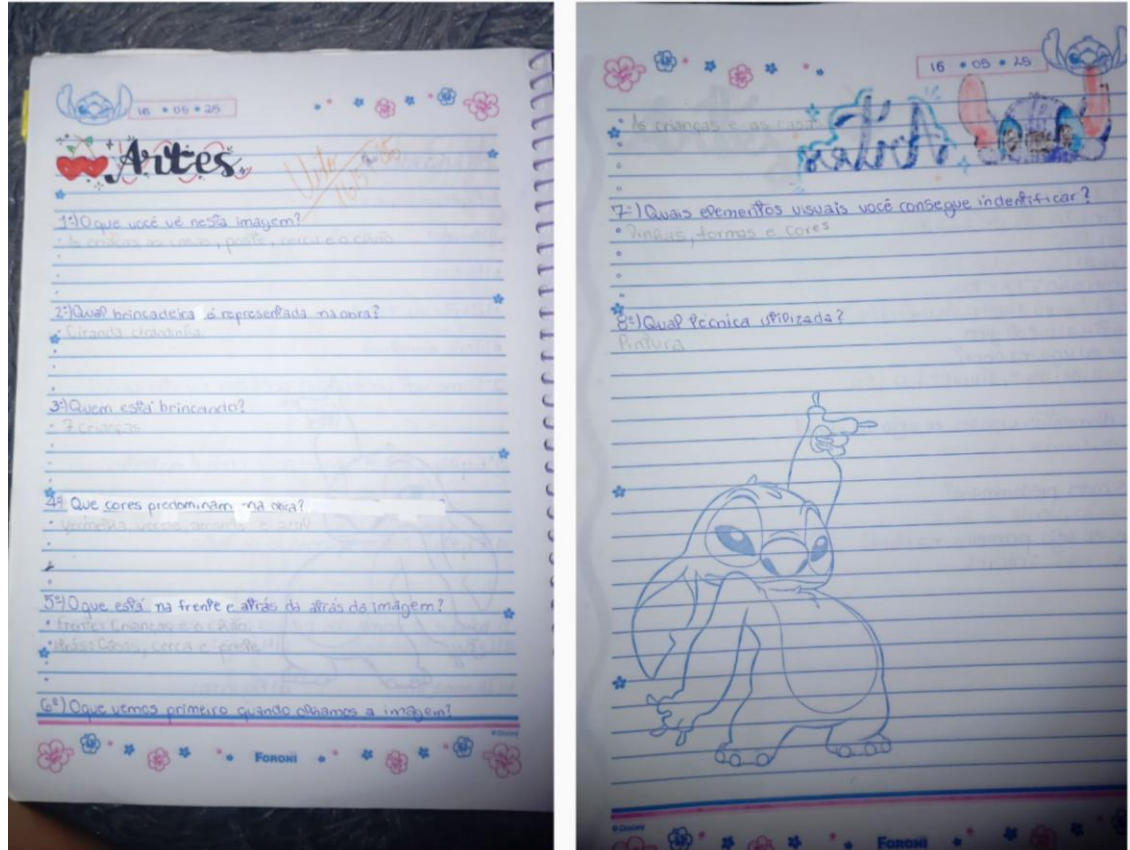 16 • 05 • 25
Artes
Visto
16/5
1ª) O que você vê nesta imagem?
• As crianças as casas, poste, cerca e o chão
2ª) Qual brincadeira é representada na obra?
• Ciranda cirandinha
3ª) Quem está brincando?
• 7 crianças
4ª Que cores predominam na obra? ?
• Vermelha, verde, e azul
5ª) O que está na frente e atrás da atrás da imagem?
• Frente: Crianças e o chão.
• Atrás: Casas, cerca e poste
6ª) O que vemos primeiro quando olhamos a imagem?
© Disney
FORONI
16 • 05 • 25
• As crianças e as casas
Artes
7ª) Quais elementos visuais você consegue indentificar?
• Linhas, formas e cores
8ª) Qual técnica utilizada?
Pintura
© Disney
FORONI